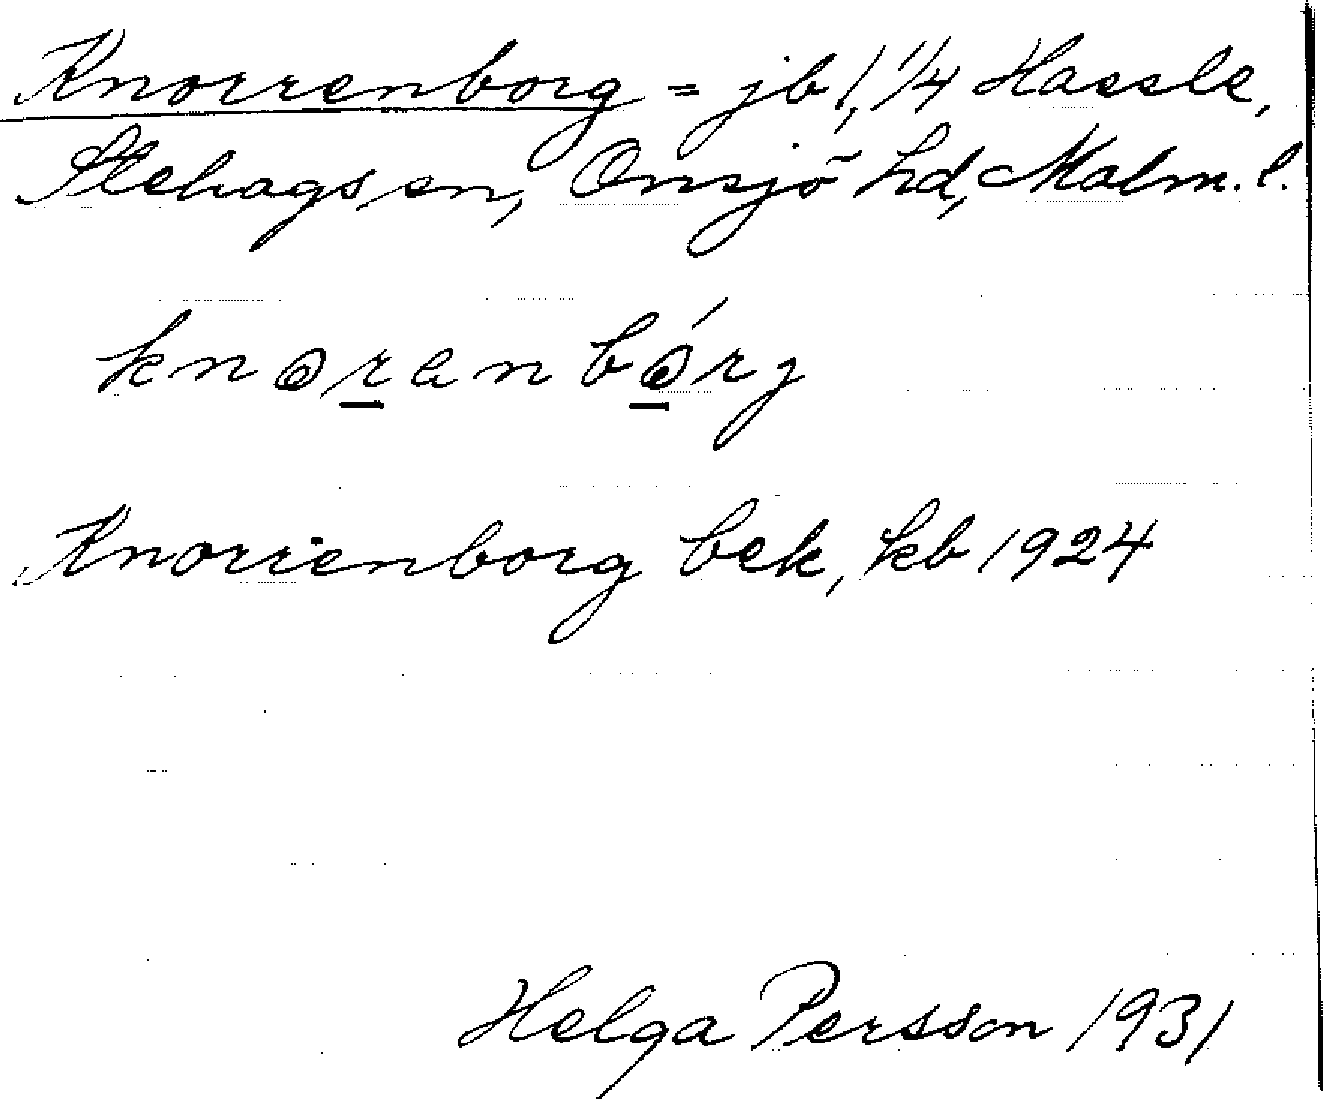 Knorrenborg = jb 1, 1/4 Hassle,
Stehags sn, Onsjö hd, Malm. l.
knoranbórg
Knorrenborg bek, kb 1924
Helga Persson 1931